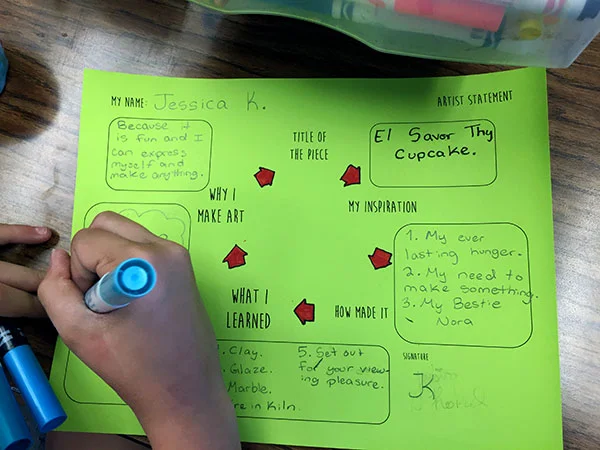 MY NAME: Jessica K.
ARTIST STATEMENT
TITLE OF
THE PIECE
El Savor Thy
Cupcake.
Because it
is fun and I
can express
myself and
make anything.
WHY I
MAKE ART
MY INSPIRATION
1. My ever
lasting hunger.
2. My need to
make something.
3. My Bestie
Nora
WHAT I
LEARNED
HOW MADE IT
Clay.
Glaze.
Marble.
in Kiln.
5. Set out
for your view-
ing pleasure.
SIGNATURE
JK